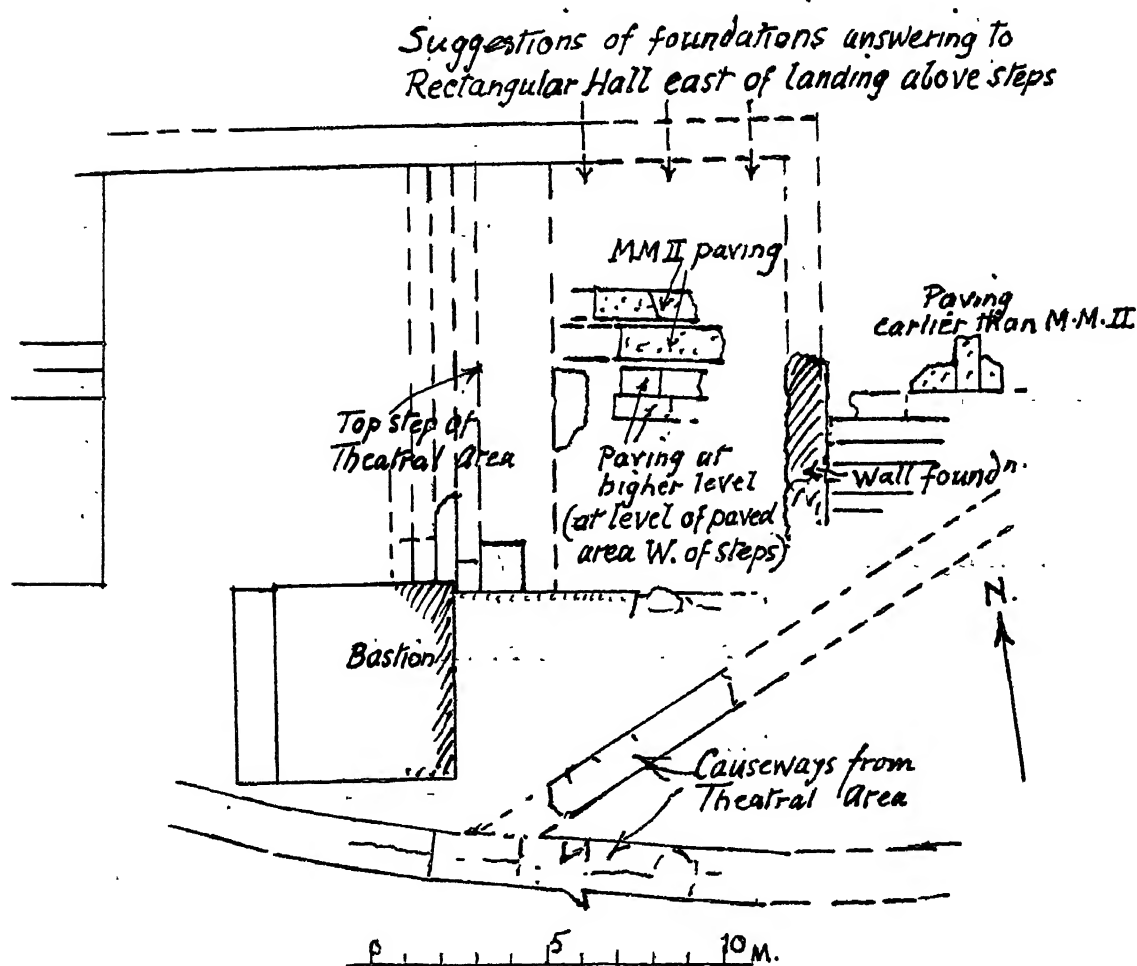 Suggestions of foundations answering to
Rectangular Hall east of landing above steps
MM II paving
Paving
earlier than M.M.II
Top step of
Theatral Area
Paving at
higher level
(at level of paved
area W. of steps)
Wall foundⁿ.
N.
Bastion
Causeways from
Theatral Area
0 5 10 M.